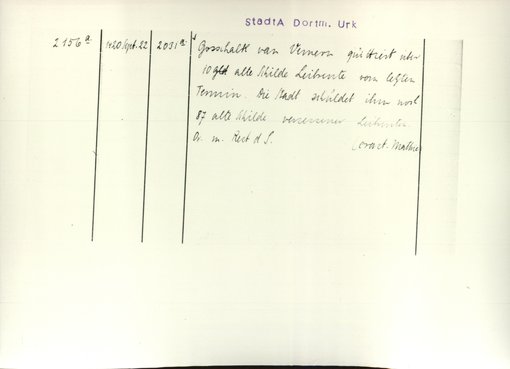 StadtA Dortm. Urk
2156a 1420 Sept. 22 2031a Gosschalk van Vemern quittiert über
10 alte Schilde Leibrente vom letzten
Termin. Die Stadt schuldet ihm noch
87 alte Schilde versessener Leibrente.
Or. m. Rest d S. (crast. Mathei